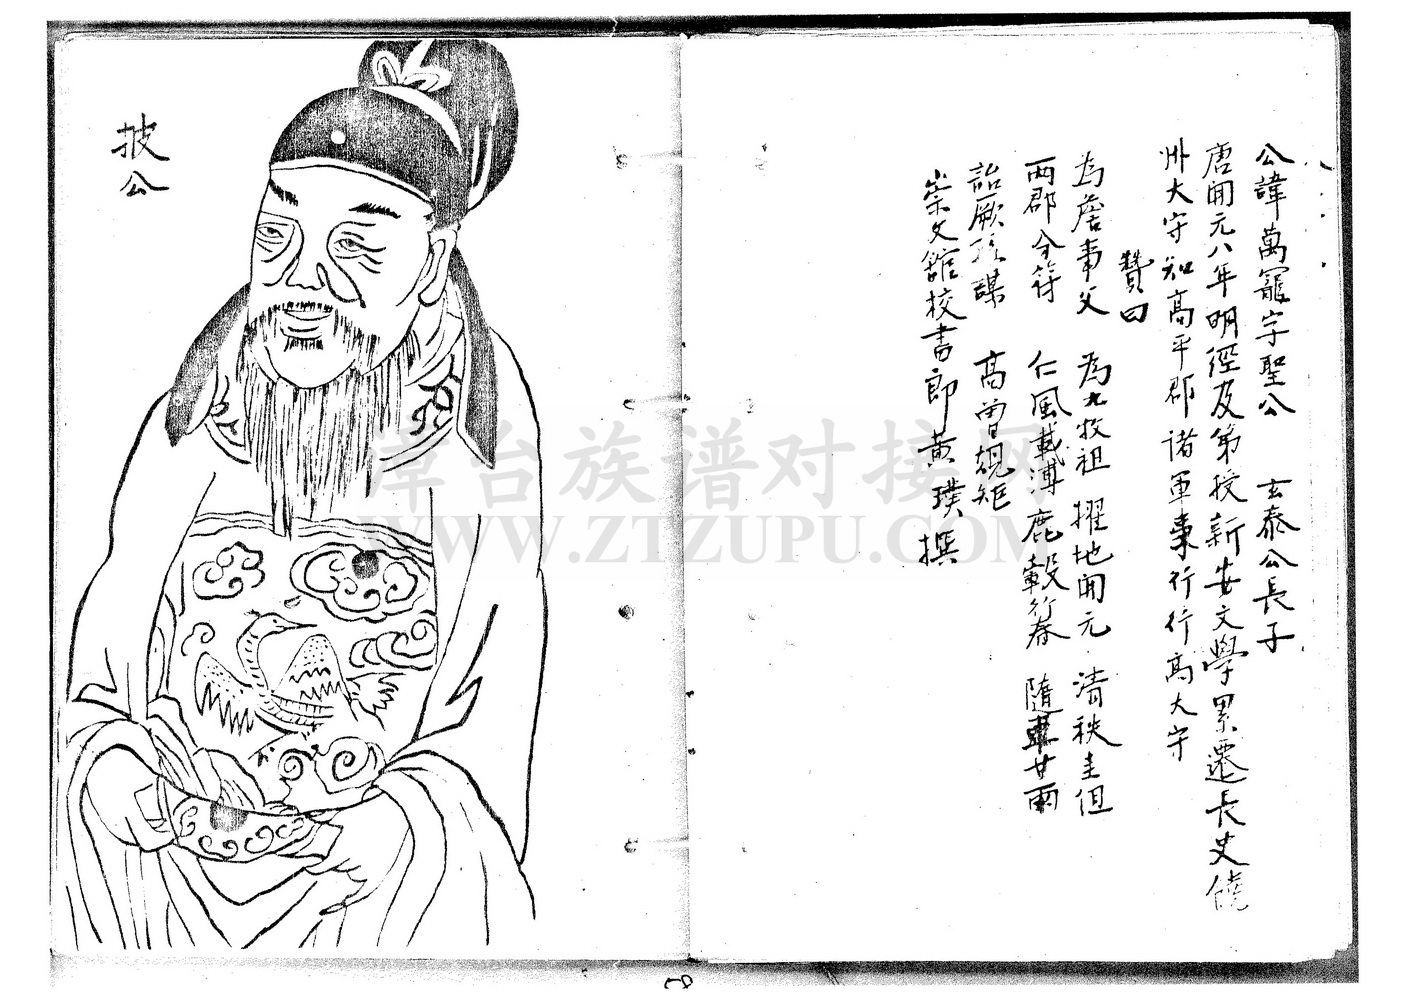 公諱萬寵字聖公 玄泰公長子
唐開元八年明經及第授新安文學累遷長史饒
州大守知高平郡諸軍事行行高大守
贊曰
為詹事父 為九牧祖 擢地開元 清秩圭但
兩郡分符 仁風載溥 鹿轂行春 隨車甘雨
詒厥孫謀 高曾規矩
崇文館校書郎黃璞撰
披公
漳台族谱对接网
WWW.ZTZUPU.COM